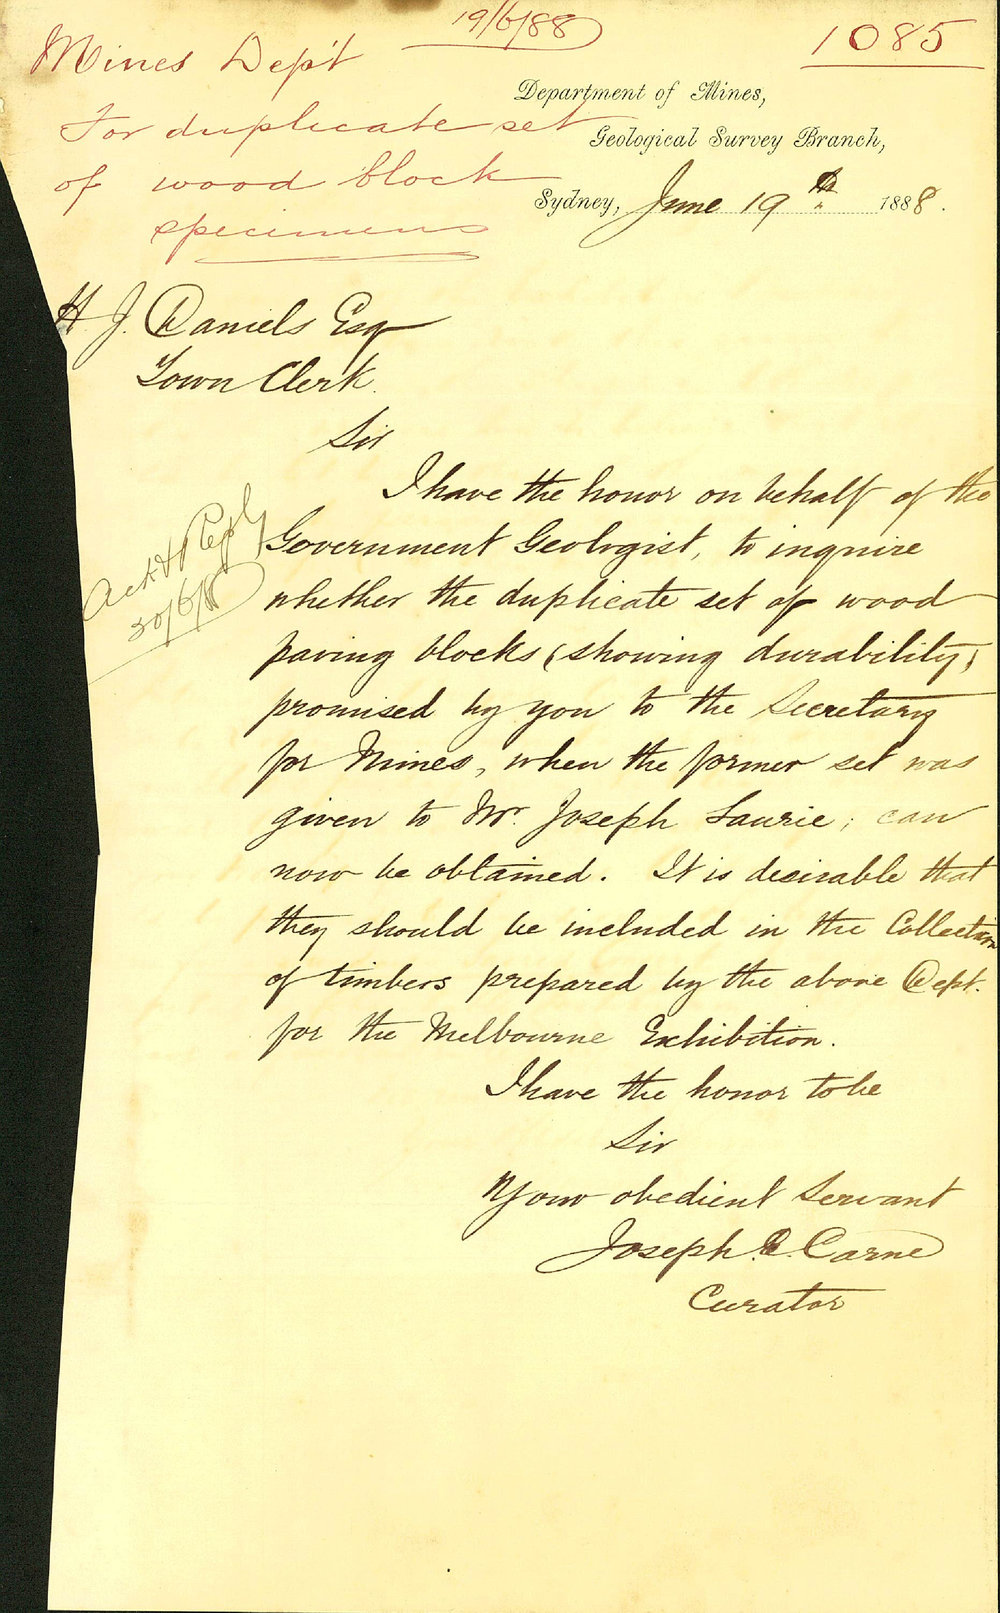 19/6/88
1085
Mines Dep't
For duplicate set
of wood block
specimens
Department of Mines,
Geological Survey Branch,
Sydney, June 19th 1888.
H. J. Daniels Esq
Town Clerk.
Sir
I have the honor on behalf of the
Government Geologist, to inquire
whether the duplicate set of wood
paving blocks (showing durability)
promised by you to the Secretary
for Mines, when the former set was
given to Mr. Joseph Laurie; can
now be obtained. It is desirable that
they should be included in the Collection
of timbers prepared by the above Dept.
for the Melbourne Exhibition.
I have the honor to be
Sir
Your obedient Servant
Joseph E. Carne
Curator
Ack & Reply
20/6/88